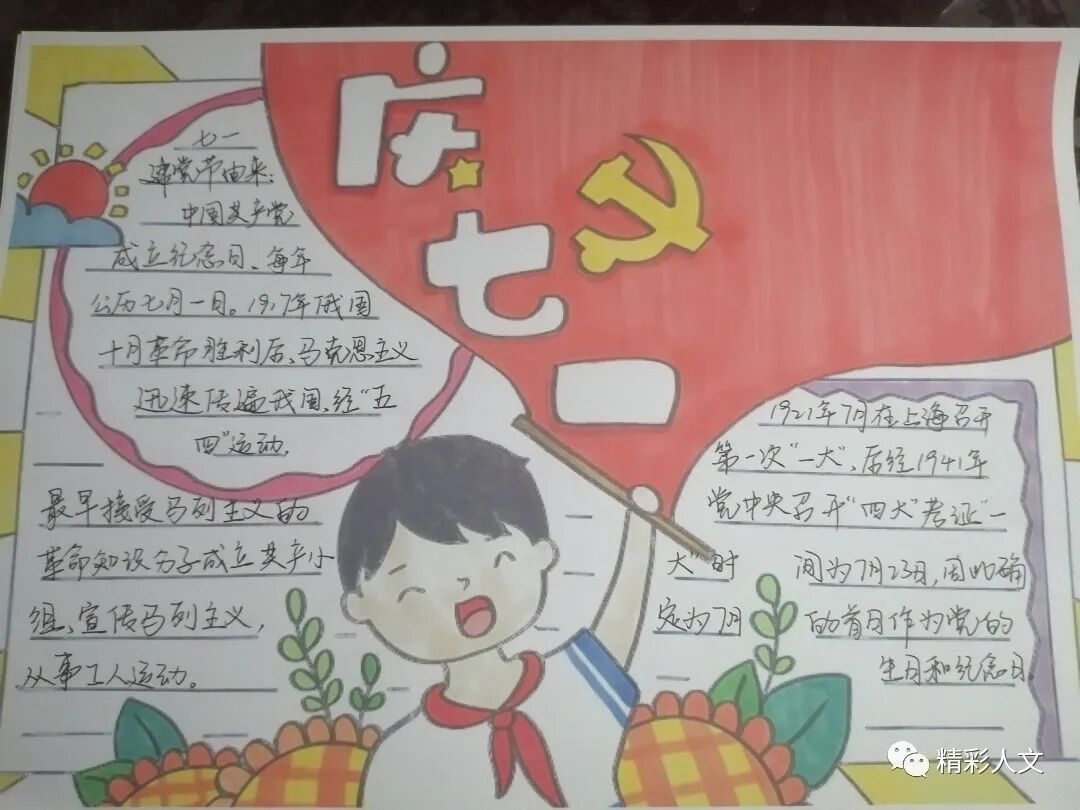 庆
七
一
七一
建党节由来:
中国共产党
成立纪念日、每年
公历七月一日。1917年俄国
十月革命胜利后、马克思主义
迅速传遍我国、经“五
四”运动、
最早接受马列主义的
革命知识分子成立共产小
组、宣传马列主义,
从事工人运动。
1921年7月在上海召开
第一次“一大”、后经1941年
党中央召开“四大”考证“一
大”时 间为7月23日,因此确
定为7月 的首日作为党的
生日和纪念日.
精彩人文